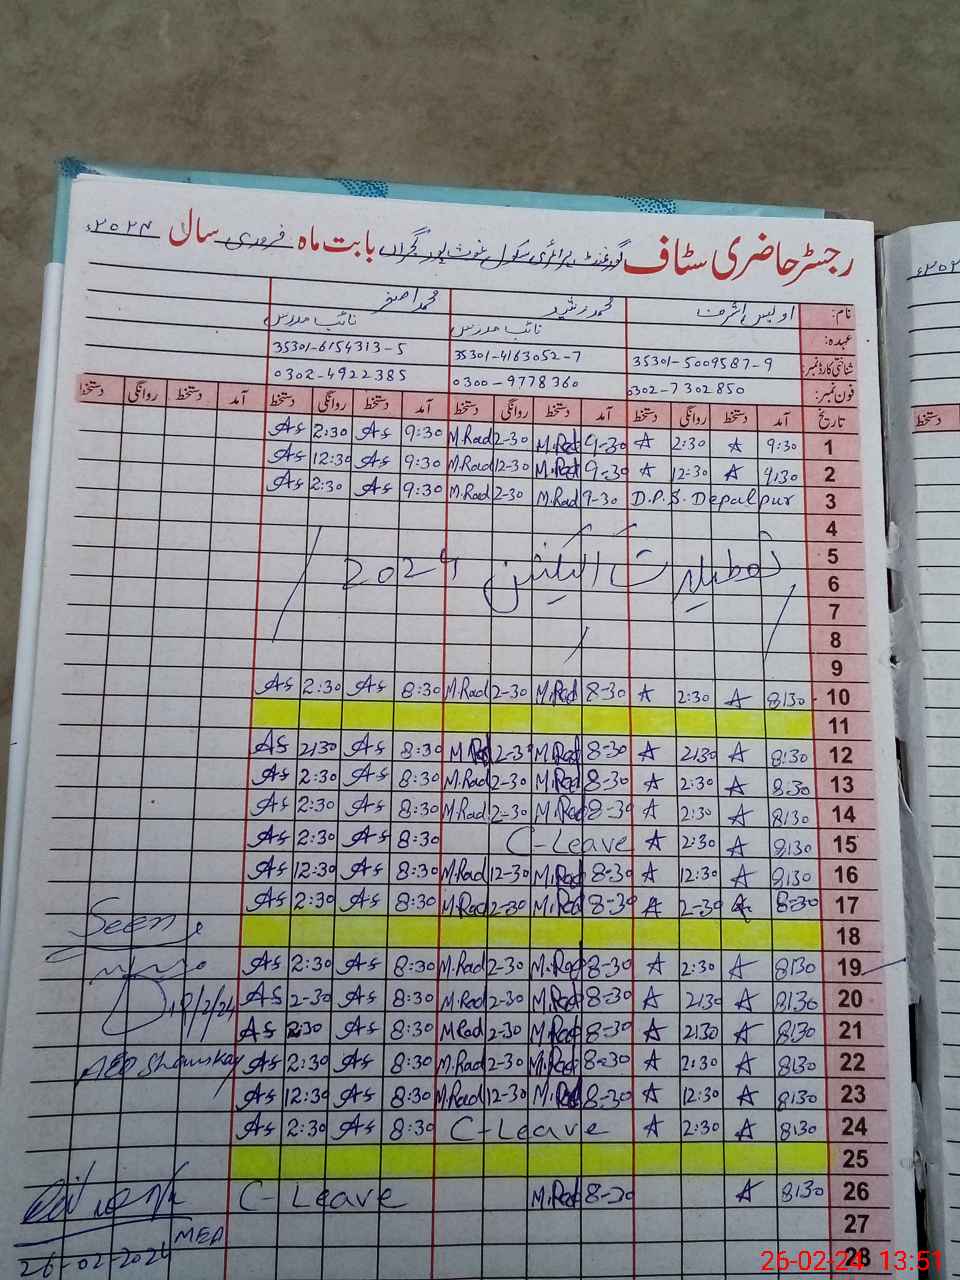 رجسٹر حاضری سٹاف گورنمنٹ پرائمری سکول بابت ماہ فروری سال ۲۰۲۴ء
نام: اویس اشرف محمد رشید محمد اصغر
عہدہ: نائب مدرس نائب مدرس
شناختی کارڈ نمبر: 35301-5009587-9 35301-4163052-7 35301-6154313-5
فون نمبر: 0302-7302850 0300-9778360 0302-4922385
تاریخ آمد دستخط روانگی دستخط آمد دستخط روانگی دستخط آمد دستخط روانگی دستخط آمد دستخط روانگی دستخط
1 9:30 A 2:30 A 9-30 M.Rad 2-30 M.Rad 9:30 As 2:30 As
2 9:30 A 12:30 A 9-30 M.Rad 12-30 M.Rad 9:30 As 12:30 As
3 D.P.S. Depalpur 9-30 M.Rad 2-30 M.Rad 9:30 As 2:30 As
4
5
تعطیلات الیکشن 2024
6
7
8
9
10 8:30 A 2:30 A 8-30 M.Rad 2-30 M.Rad 8:30 As 2:30 As
11
12 8:30 A 2:30 A 8-30 M.Rad 2-3 M.Rad 8:30 As 2:30 As
13 8:30 A 2:30 A 8-30 M.Rad 2-30 M.Rad 8:30 As 2:30 As
14 8:30 A 2:30 A 8-30 M.Rad 2-30 M.Rad 8:30 As 2:30 As
15 8:30 A 2:30 A C-Leave 8:30 As 2:30 As
16 8:30 A 12:30 A 8-30 M.Rad 12-30 M.Rad 8:30 As 12:30 As
17 8-30 A 2-30 A 8-30 M.Rad 2-30 M.Rad 8:30 As 2:30 As
18
19 8:30 A 2:30 A 8-30 M.Rad 2-30 M.Rad 8:30 As 2:30 As
20 8:30 A 2:30 A 8-30 M.Rad 2-30 M.Rad 8:30 As 2-30 As
21 8:30 A 2:30 A 8-30 M.Rad 2-30 M.Rad 8:30 As 2:30 As
22 8:30 A 2:30 A 8-30 M.Rad 2-30 M.Rad 8:30 As 2:30 As
23 8:30 A 12:30 A 8-30 M.Rad 12-30 M.Rad 8:30 As 12:30 As
24 8:30 A 2:30 A C-Leave 8:30 As 2:30 As
25
26 8:30 A 8-30 M.Rad C-Leave
27
28
Seen
18/2/24
AEO Shamskay
MEA
26-02-2024
26-02-24 13:51
دستخط